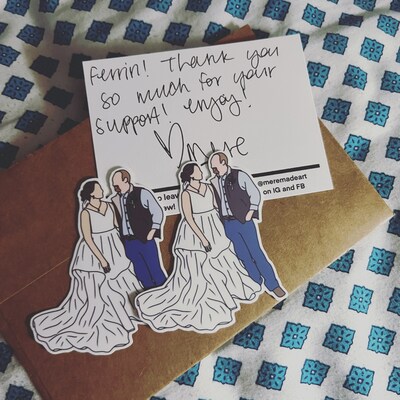 Ferrin! Thank you
so much for your
support! enjoy!
o leav
@meremadeart
ew!
on IG and FB